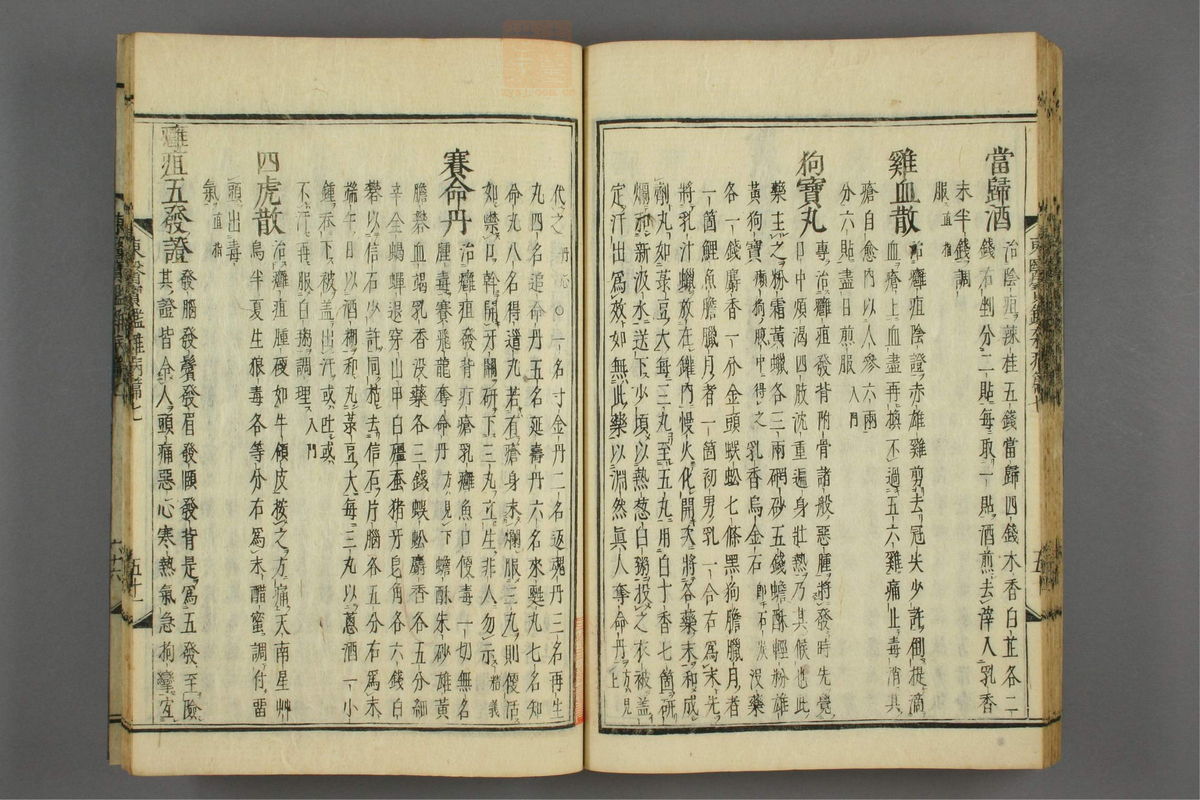 當歸酒 治陰疽辣桂五錢當歸四錢木香白芷各二
錢右剉分二貼每取一貼酒煎去滓入乳香
末半錢調
服直指
雞血散 治癰疽陰證赤雄雞剪去冠尖少許倒提滴
血瘡上血盡再換不過五六雞痛止毒消其
瘡自愈內以人參六兩
分六貼盡日煎服入門
狗寶丸 專治癰疽發背附骨諸般惡腫將發時先覺
口中煩渴四肢沈重遍身壯熱乃其候也此
藥主之粉霜黃蠟各三兩硇砂五錢蟾酥輕粉雄
黃狗寶癩狗腹中得之乳香烏金石卽石炭沒藥
各一錢麝香一分金頭蜈蚣七條黑狗膽臘月者
一箇鯉魚膽臘月者一箇初男乳一合右爲末先
將乳汁蠟放在鑵內慢火化開次將各藥末和成
劑丸如菉豆大每三丸至五丸用白丁香七箇研
爛和新汲水送下少頃以熱葱白粥投之衣被盖
定汗出爲效如無此藥以淵然眞人奪命丹方見上
代之丹心○一名寸金丹二名返魂丹三名再生
丸四名追命丹五名延壽丹六名來甦丸七名知
命丸八名得道丸若有瘡身未爛服三丸則便活
如噤口幹開牙關研下三丸立生非人勿示精義
賽命丹 治癰疽發背疔瘡乳癰魚口便毒一切無名
腫毒賽飛龍奪命丹方見下蟾酥朱砂雄黃
膽礬血竭乳香沒藥各三錢蜈蚣麝香各五分細
辛全蝎蟬退穿山甲白殭蚕猪牙皂角各六錢白
礬以信石少許同枯去信石片腦各五分右爲末
端午日以酒糊和丸菉豆大每三丸以蔥酒一小
鍾呑下被盖出汗或吐或
不汗再服白粥調理入門
四虎散 治癰疽腫硬如牛領皮按之方痛天南星艸
烏半夏生狼毒各等分右爲末醋蜜調付留
頭出毒
氣直指
癰疽五發證 發腦發鬢發眉發頤發背是爲五發至險
其證皆令人頭痛惡心寒熱氣急拘攣宜